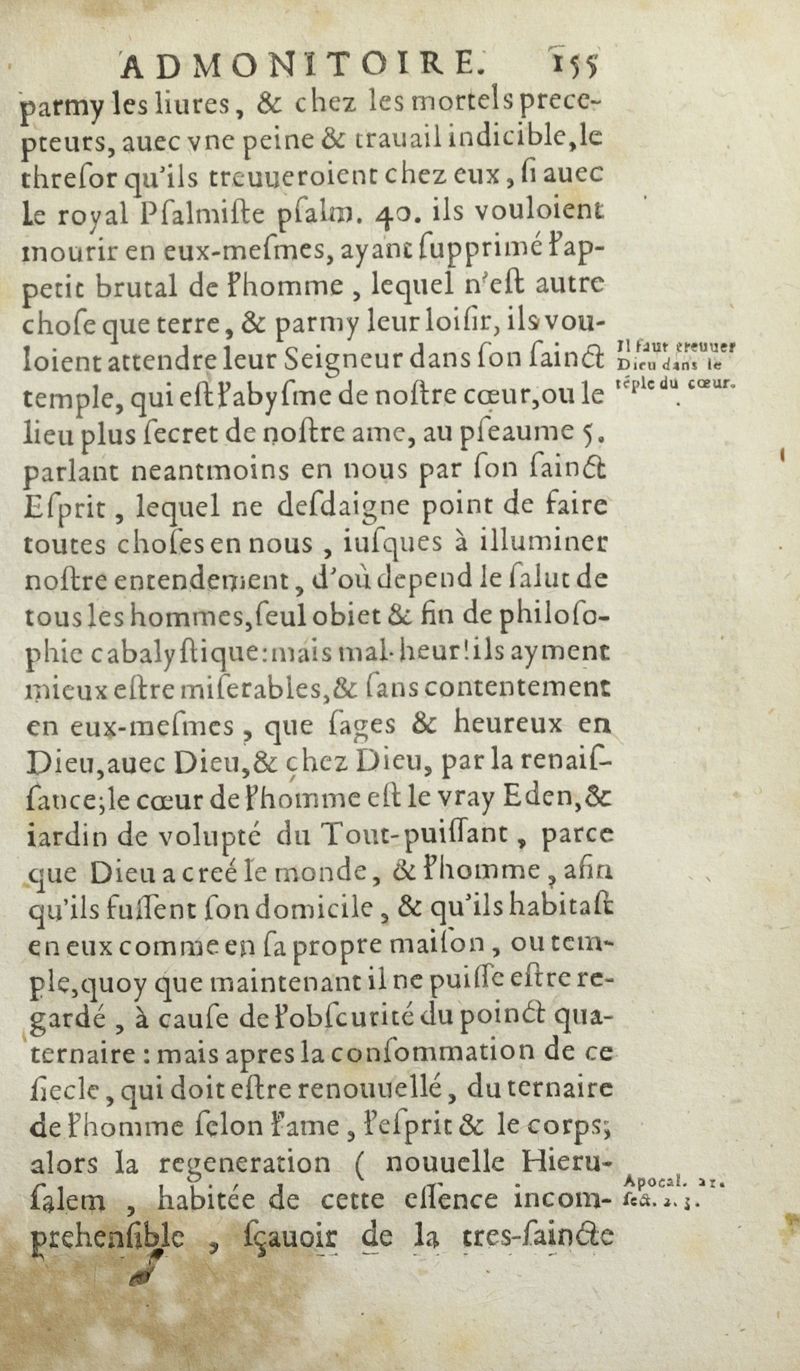 ADMONITOIRE. 155
parmy les liures, & chez les mortels prece-
pteurs, auec vne peine & trauail indicible, le
threſor qu'ils treuueroient chez eux, ſi auec
le royal Pſalmiſte pſalm. 40. ils vouloient
mourir en eux-meſmes, ayant ſupprimé l'ap-
petit brutal de l'homme, lequel n'eſt autre
choſe que terre, & parmy leur loiſir, ils vou-
loient attendre leur Seigneur dans ſon ſainct
temple, qui eſt l'abyſme de noſtre cœur, ou le
lieu plus ſecret de noſtre ame, au pſeaume 5.
parlant neantmoins en nous par ſon ſainct
Eſprit, lequel ne deſdaigne point de faire
toutes choſes en nous, iuſques à illuminer
noſtre entendement, d'où depend le ſalut de
tous les hommes, ſeul obiet & fin de philoſo-
phie cabalyſtique: mais mal-heur! ils ayment
mieux eſtre miſerables, & ſans contentement
en eux-meſmes, que ſages & heureux en
Dieu, auec Dieu, & chez Dieu, par la renaiſ-
ſance; le cœur de l'homme eſt le vray Eden, &
iardin de volupté du Tout-puiſſant, parce
que Dieu a creé le monde, & l'homme, afin
qu'ils fuſſent ſon domicile, & qu'ils habitaſt
en eux comme en ſa propre maiſon, ou tem-
ple, quoy que maintenant il ne puiſſe eſtre re-
gardé, à cauſe de l'obſcurité du poinct qua-
ternaire: mais apres la conſommation de ce
ſiecle, qui doit eſtre renouuellé, du ternaire
de l'homme ſelon l'ame, l'eſprit & le corps;
alors la regeneration ( nouuelle Hieru-
ſalem, habitée de cette eſſence incom-
prehenſible, ſçauoir de la tres-ſaincte
Il faut treuuer
Dieu dans le
tẽple du cœur.
Apocal. 21.
ſect. 2. 3.